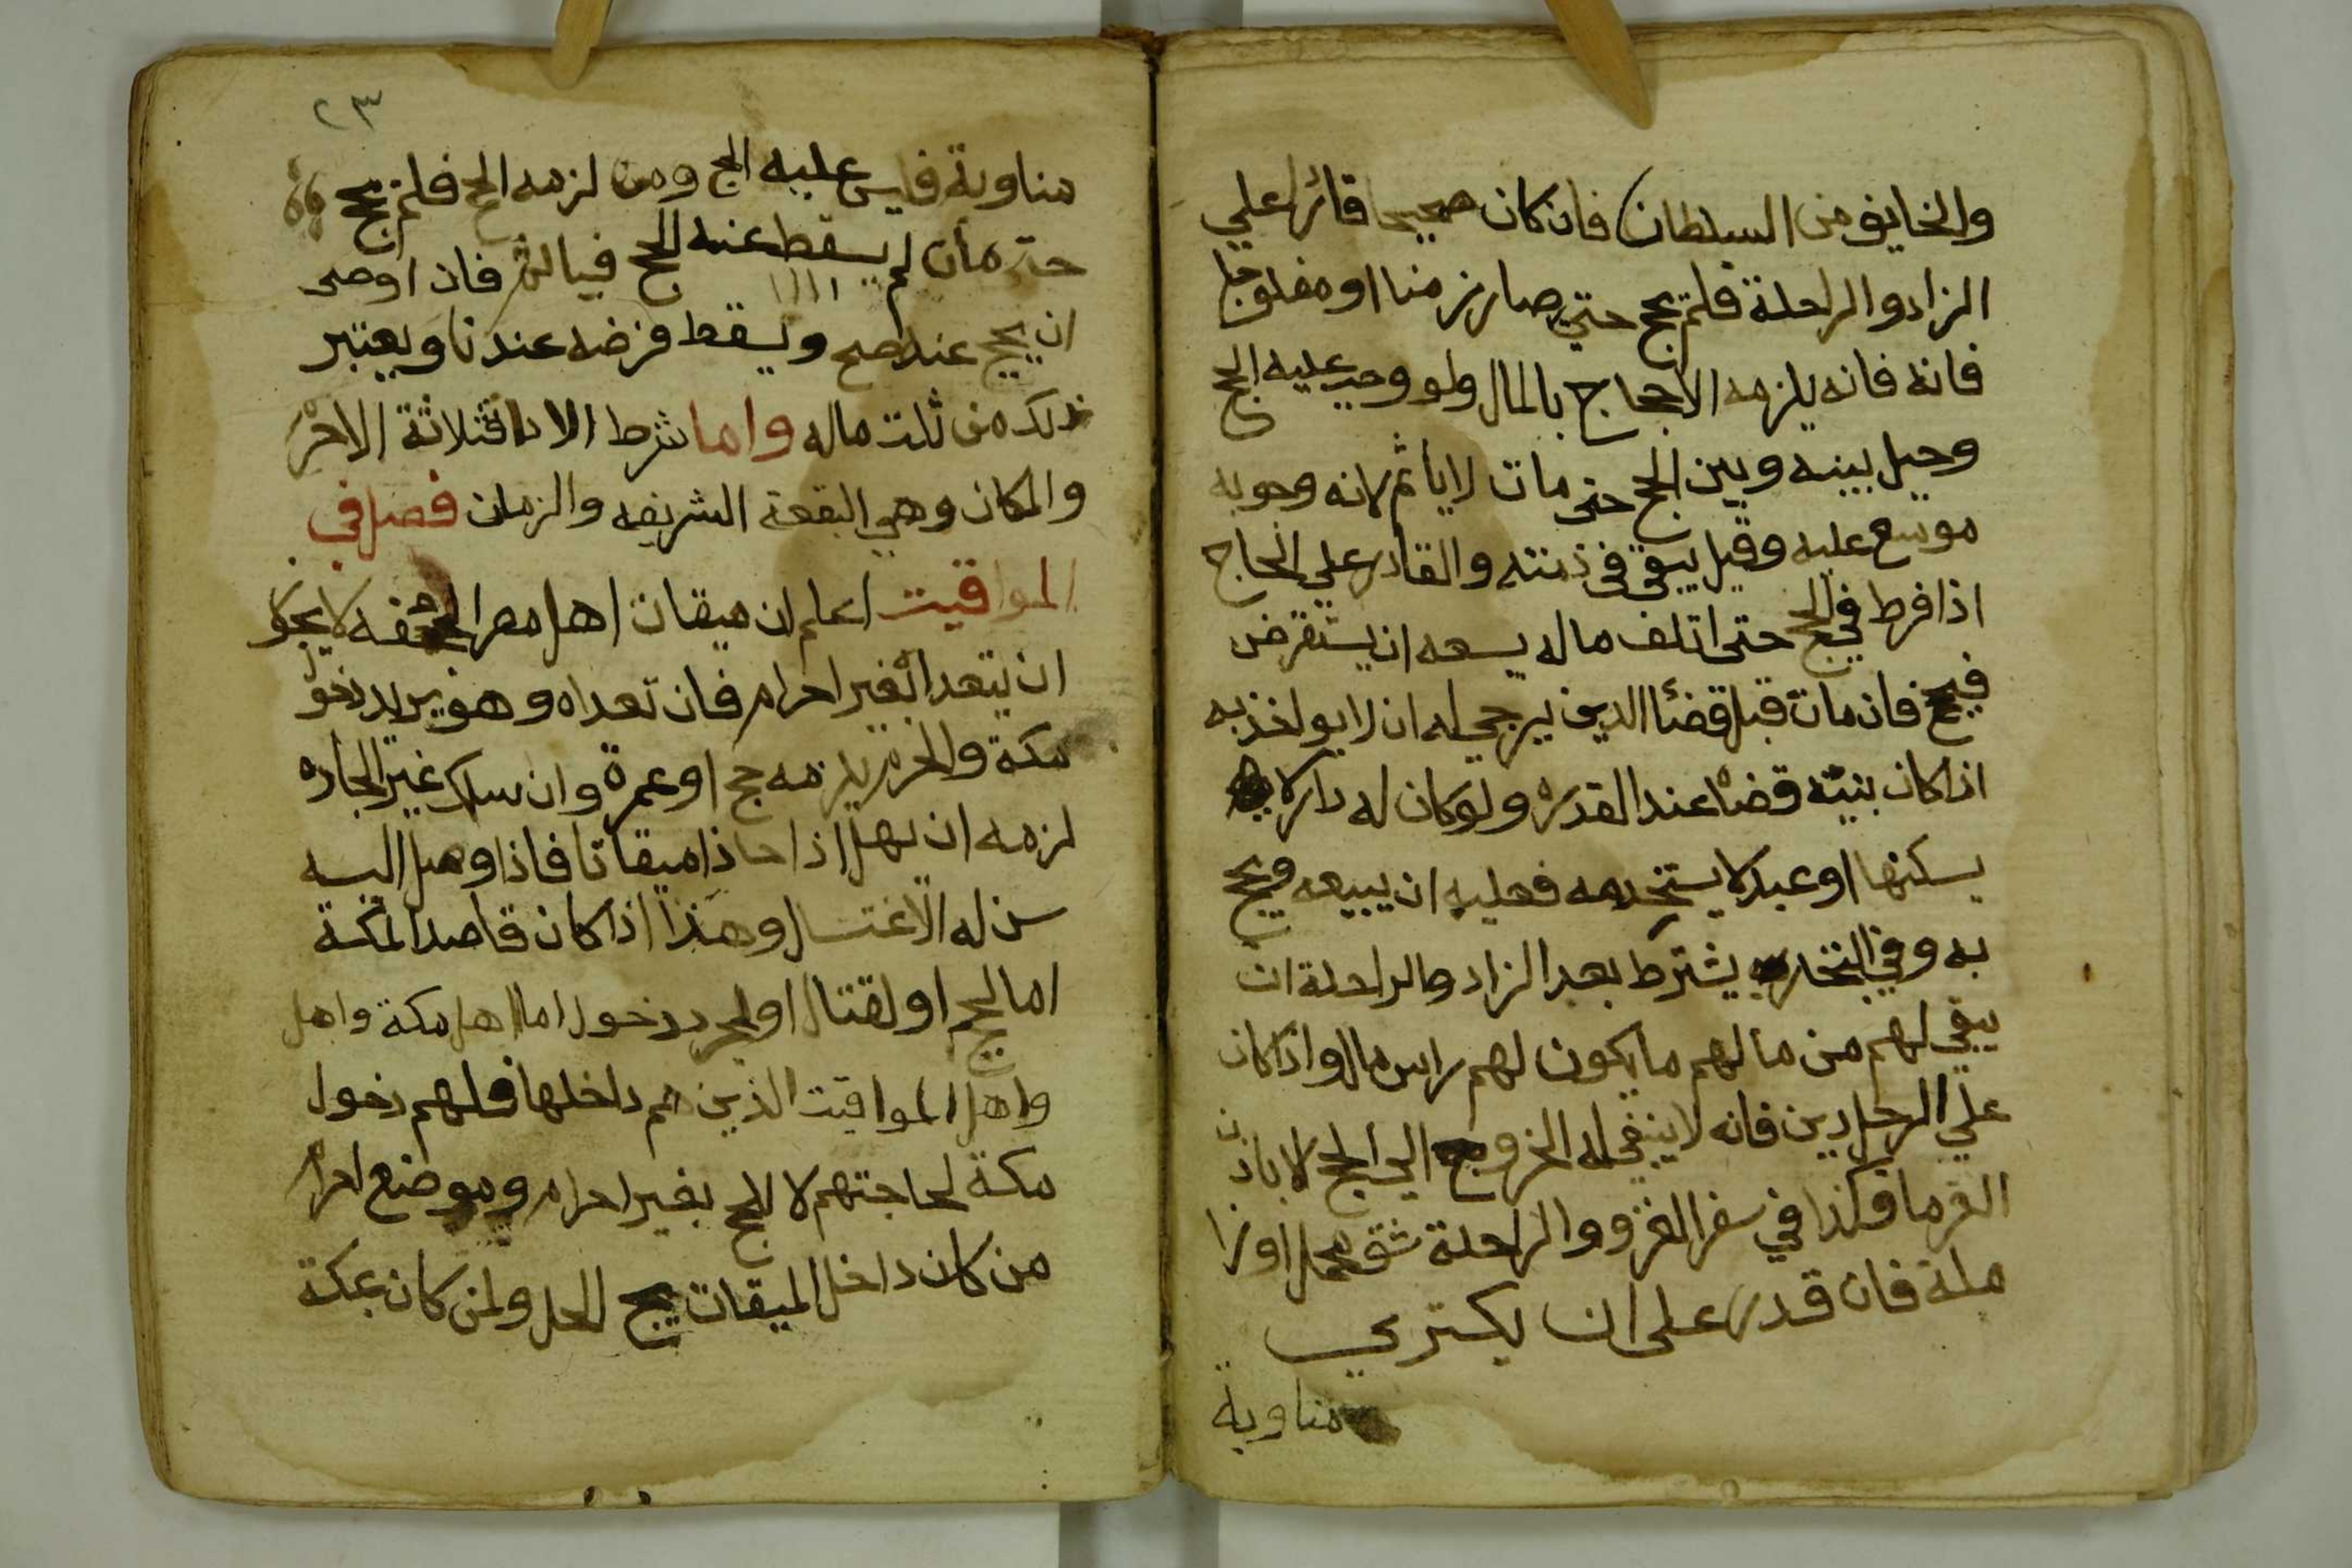 والخايف من السلطان فان كان صحيحا قادرا علي
الزاد والراحلة فلم يحج حتي صار زمنا او مفلوجا
فانه فانه يلزمه الاحجاج بالمال ولو وجب عليه الحج
وحيل بينه وبين الحج حتى مات لا يأثم لانه وجوبه
موسع عليه وقيل يبقى في ذمته والقادر علي الحاج
اذا فرط في الحج حتى اتلف ماله يسعه ان يستقرض
فيحج فان مات قبل قضا الدين يرجي له ان لا يواخذ به
اذا كان بنيته قضاه عند القدره ولو كان له دار لا
يسكنها او عبد لا يستخدمه فعليه ان يبيعه ويحج
به وفي التجار يشترط بعد الزاد والراحلة ان
يبقي لهم من مالهم ما يكون لهم راس مال واذا كان
علي الرجل دين فانه لا ينبغي له الخروج الي الحج الا باذن
الغرما وكذا في سفر الغزو والراحلة شق محمل او زا
ملة فان قدر على ان يكتري
مناوبة
٢٣
مناوبة فليس عليه الحج ومن لزمه الحج فلم يحج
حتى مات لم يسقط عنه الحج فياثم فان اوصى
ان يحج عنه صح ويسقط فرضه عندنا ويعتبر
ذلك من ثلث ماله واما شرط الادا فثلاثة الاحرام
والمكان وهي البقعة الشريفه والزمان فصل في
المواقيت اعلم ان ميقات اهل مصر الجحفه لا يجوز
ان يتعدا بغير احرام فان تعداه وهو يريد دخول
مكة والحرم يلزمه حج او عمرة وان سلك غير الجاده
لزمه ان يهل اذا حاذا ميقاتا فاذا وصل اليه
سن له الاغتسال وهذا اذا كان قاصدا لمكة
اما لحج او لقتال او لمجرد دخول اما اهل مكة واهل
واهل المواقيت الذين هم داخلها فلهم دخول
مكة لحاجتهم لا للحج بغير احرام وموضع احرام
من كان داخل الميقات الحل ولمن كان بمكة